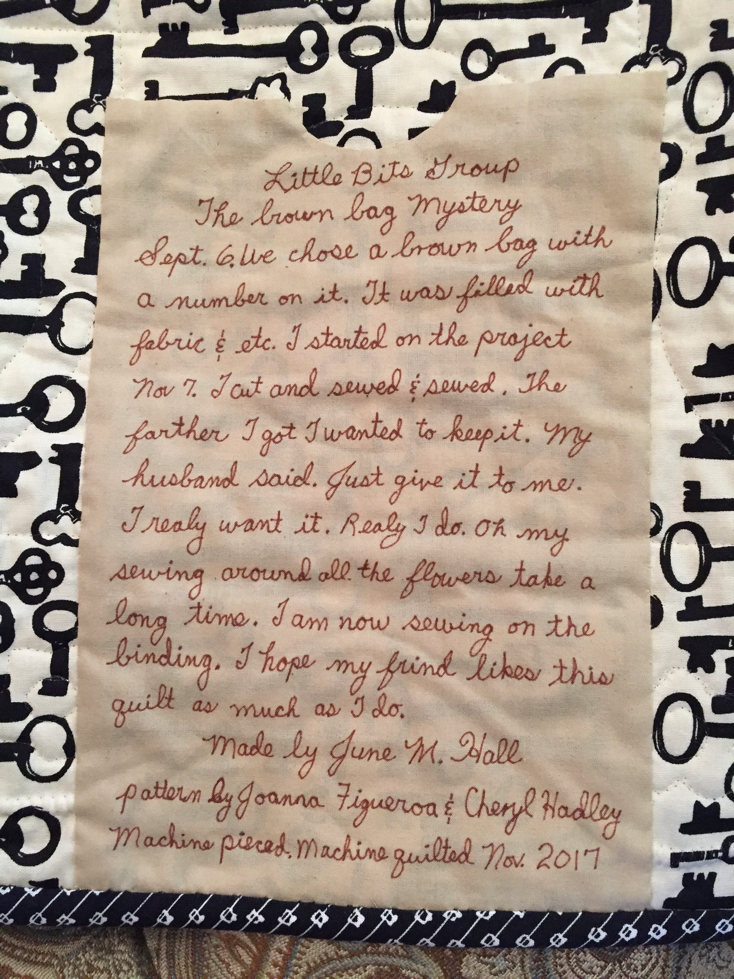 Little Bits Group
The brown bag Mystery
Sept. 6. We chose a brown bag with
a number on it. It was filled with
fabric & etc. I started on the project
Nov 7. I cut and sewed & sewed. The
farther I got I wanted to keep it. My
husband said. Just give it to me.
I realy want it. Realy I do. Oh my
sewing around all the flowers take a
long time. I am now sewing on the
binding. I hope my frind likes this
quilt as much as I do.
Made by June M. Hall
pattern by Joanna Figueroa & Cheryl Hadley
Machine pieced. Machine quilted Nov. 2017